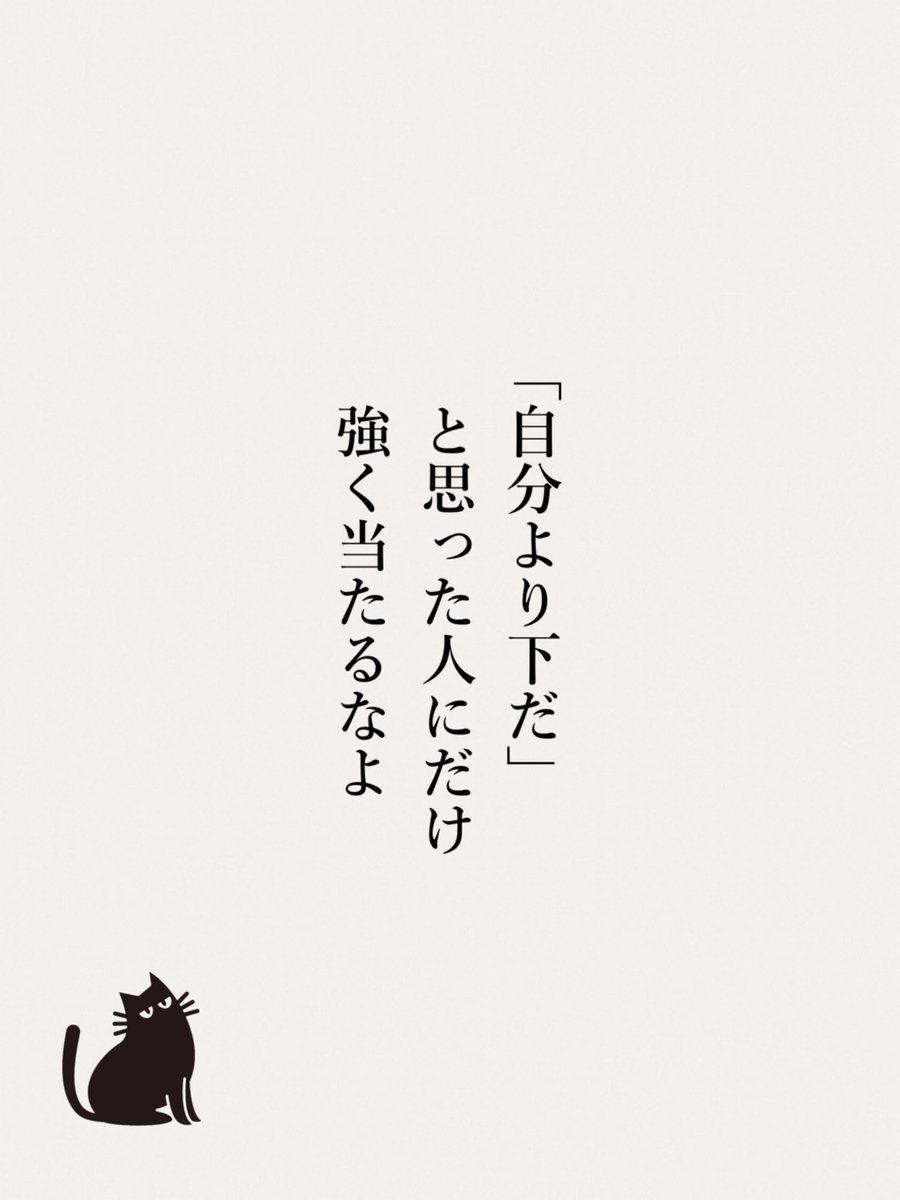 「自分より下だ」
と思った人にだけ
強く当たるなよ